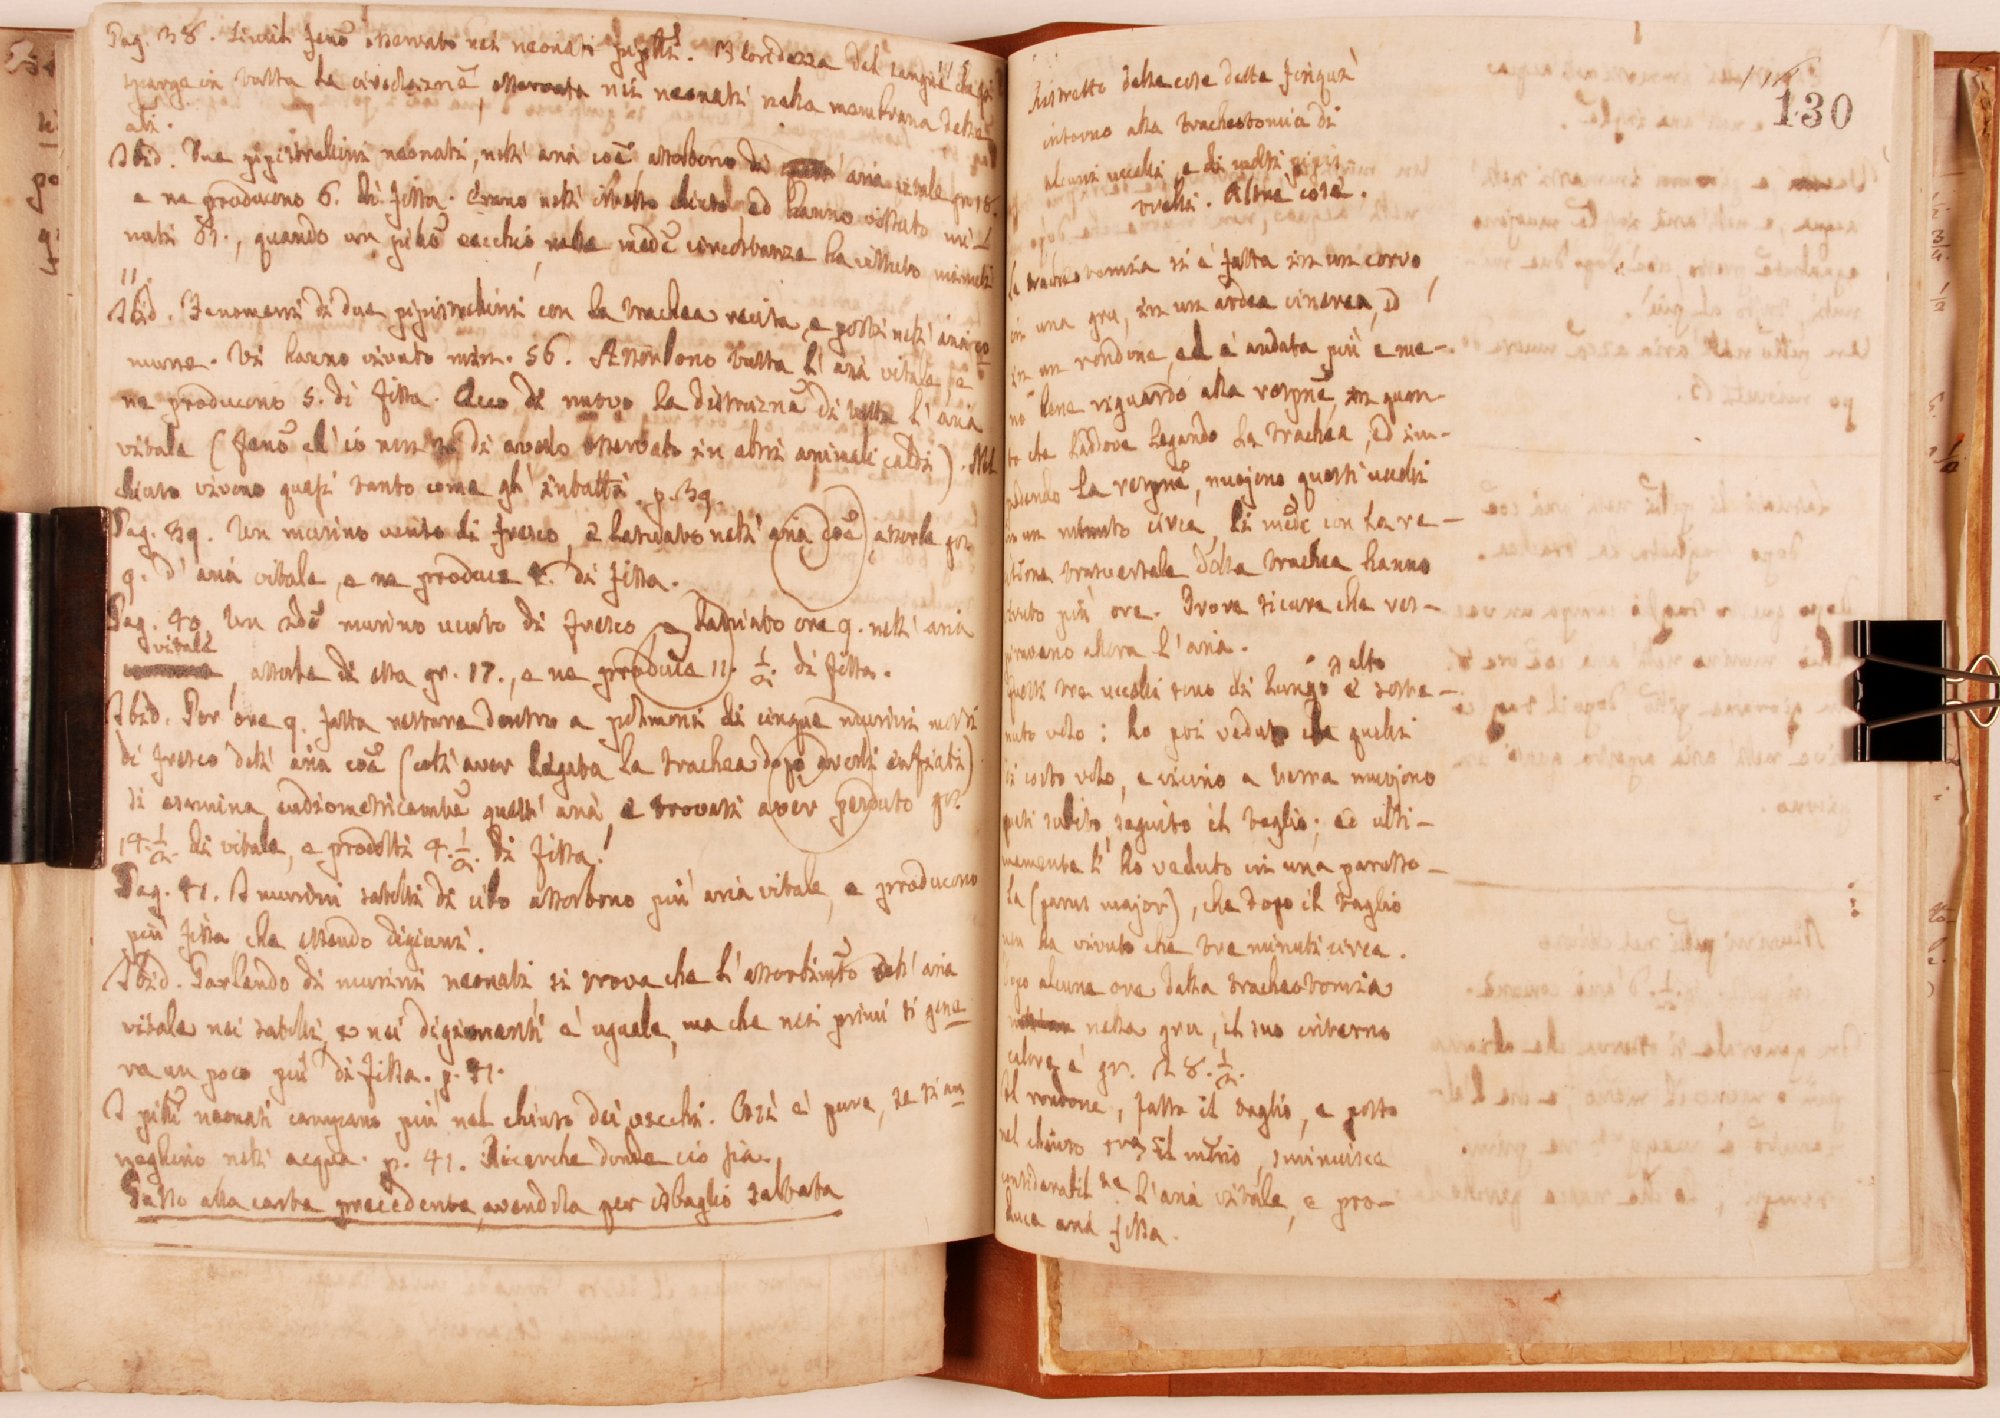 Pag. 38. Simil fenõ osservato nei neonati pip̃lli. Floridezza del sangue che si
sparge in tutta la circolaznẽ, osservata nei neonati nella membrana delle
ali.
Ibid. Due pipistrellini neonati, nell' aria coẽ assorbono di aria vitale gr. 18.
e ne producono 6. di fissa. Erano nell' istesso chiuso, ed hanno vissuto mi-
nuti 81., quando un vecchio, nelle medẽ circostanze ha vissuto minuti
11.
Ibid. Fenomeni di due pipistrellini con la trachea recisa, e posti nell' aria co
mune. Vi hanno vivuto min. 56. Assorbono tutta l' aria vitale, e
ne producono 5. di fissa. Ecco di nuovo la distruznẽ di tutta l' aria
vitale (fenõ ch' io non so di averlo osservato in altri animali caldi). Nel
chiuso vivono quasi tanto come gl' intatti. p. 39.
Pag. 39. Un murino ucciso di fresco, e lasciato nell' aria coẽ assorbe gr.
9. d' aria vitale, e ne produce 4. di fissa.
Pag. 40. Un altro murino ucciso di fresco e lasciato ore 9. nell' aria
vitale
, assorbe di essa gr. 17., e ne produce 11. 1/2. di fissa.
Ibid. Per ore 9. fatta restare dentro a polmoni di cinque murini morti
di fresco dell' aria coẽ (coll' aver legata la trachea dopo averli enfiati)
si esamina eudiometricamẽte quest' aria, e trovasi aver perduto gr.
14. 1/2. di vitale, e prodotti 4. 1/2. di fissa.
Pag. 41. I murini satolli di cibo assorbono più aria vitale, e producono
più fissa che essendo digiuni.
Ibid. Parlando di murini neonati si trova che l' assorbimẽto dell' aria
vitale nei satolli, e nei digiunanti è uguale, ma che nei primi si gene
ra un poco più di fissa. p. 41.
I pip̃lli neonati campano più nel chiuso dei vecchi. Così è pure, se si an
neghino nell' acqua. p. 41. Ricerche donde ciò sia.
Passo alla carta precedente, avendola per isbaglio saltata
130
Ristretto delle cose dette fin qui
intorno alla tracheotomia di
alcuni uccelli, e di molti pipis
trelli. Altre cose.
La tracheotomia si è fatta in un corvo,
in una gru, in un ardea cinerea, ed
in un rondone, ed è andata più e me-
no bene riguardo alla respnẽ, in quan-
to che laddove legando la trachea, ed im-
pedendo la respnẽ, muojono questi uccelli
in un minuto circa, li medẽ con la re-
cisione trasversale della trachea hanno
vivuto più ore. Prova sicura che res-
piravano allora l' aria.
Questi tre uccelli sono di lungo e alto e soste-
nuto volo: ho poi veduto che quelli
di corto volo, e vicino a terra muojono
quasi subito, seguito il taglio; ed ulti-
mamente l' ho veduto in una parusso-
la (parus major), che dopo il taglio
non ha vivuto che tre minuti circa.
Dopo alcune ore dalla tracheotomia
nella gru, il suo interno
calore è gr. 28. 1/2.
Il rondone, fatto il taglio, e posto
nel chiuso sopra il mẽrio, sminuisce
considerabilmẽte l' aria vitale, e pro-
duce aria fissa.